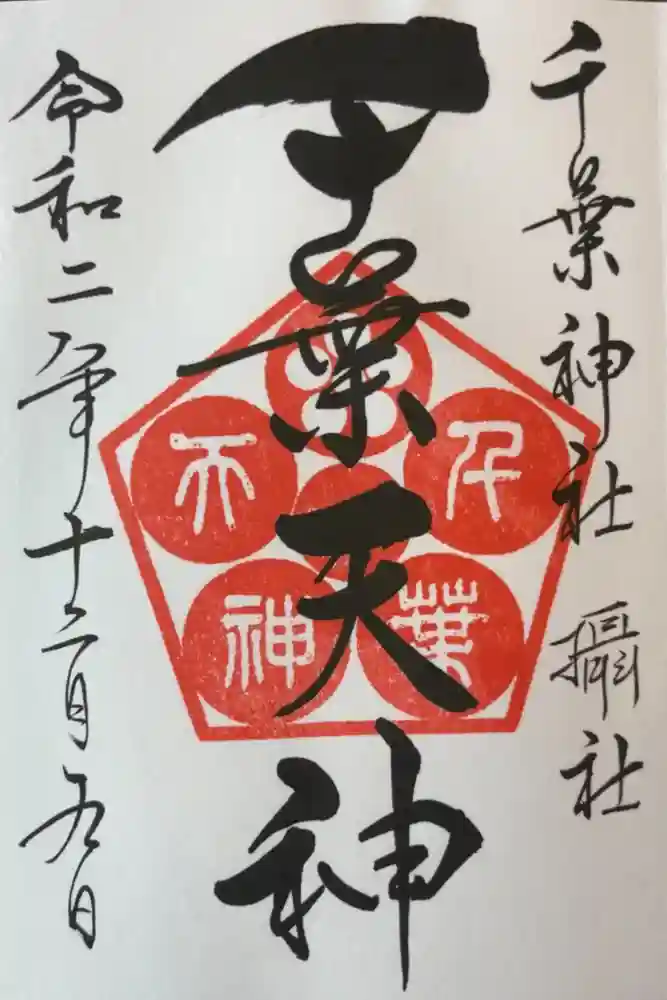 千葉神社 攝社
千葉天神
千葉天神
令和二年十二月九日